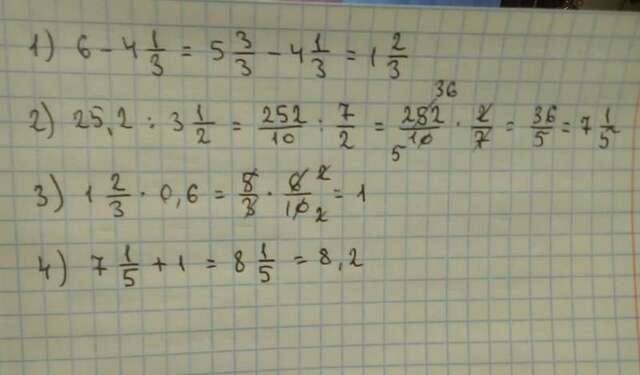 1) 6 - 4 1/3 = 5 3/3 - 4 1/3 = 1 2/3
2) 25,2 : 3 1/2 = 252/10 : 7/2 = 252 36/10 5 · 2/7 = 36/5 = 7 1/5
3) 1 2/3 · 0,6 = 5/3 · 6 2/10 2 = 1
4) 7 1/5 + 1 = 8 1/5 = 8,2